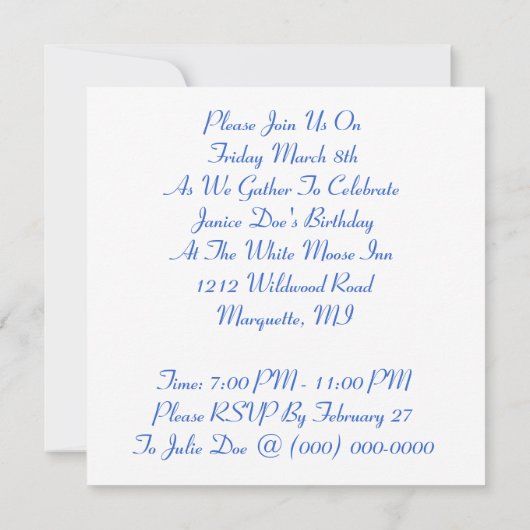 Please Join Us On
Friday March 8th
As We Gather To Celebrate
Janice Doe's Birthday
At The White Moose Inn
1212 Wildwood Road
Marquette, MI
Time: 7:00 PM - 11:00 PM
Please RSVP By February 27
To Julie Doe @ (000) 000-0000